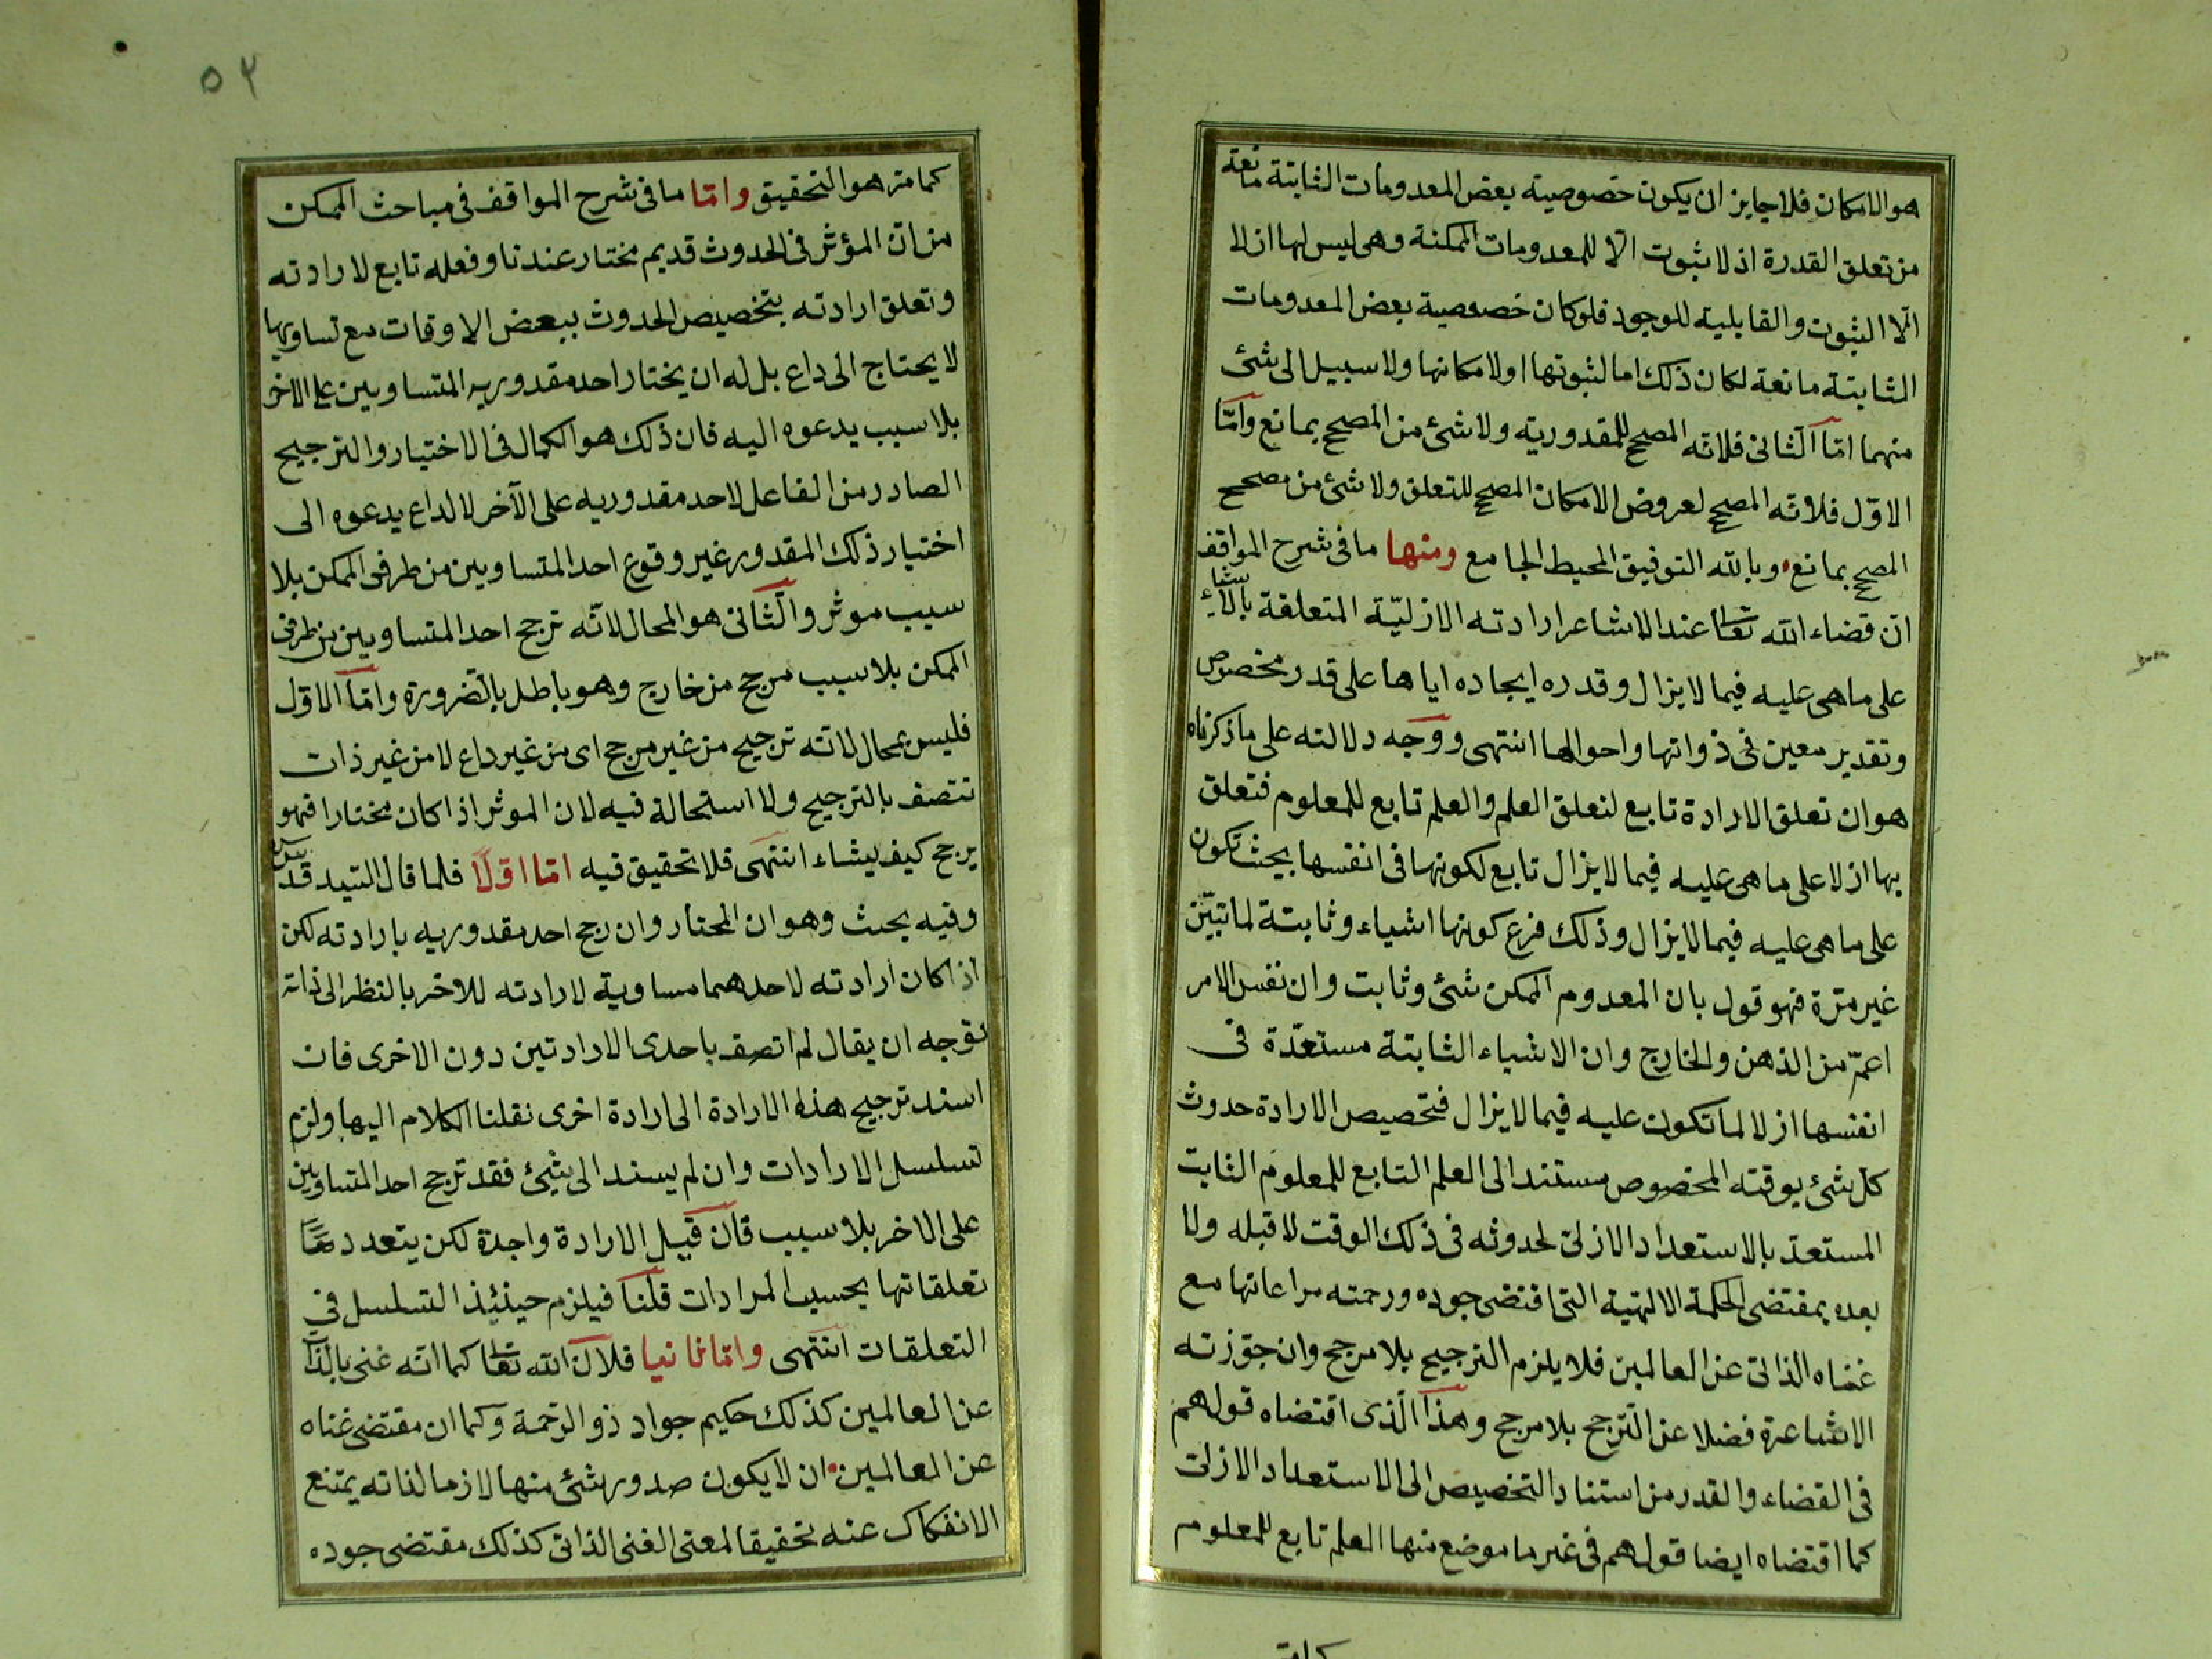 هو الامكان فلا جايز ان يكون خصوصية بعض المعدومات الثابتة مانعة
من تعلق القدرة اذ لا ثبوت الا للمعدومات الممكنة وهى ليس لها ازلا
الّا الثبوت والقابلية للوجود فلو كان خصوصية بعض المعدومات
الثابتة مانعة لكان ذلك اما لثبوتها او لامكانها ولا سبيل الى شئ
منهما امّا الثانى فلانّه المصحح للمقدورية ولا شئ من المصحح بمانع وامّا
الاوّل فلانّه المصحح لعروض الامكان المصحح للتعلق ولا شئ من مصحح
المصحح بمانع وبالله التوفيق المحيط الجامع ومنها ما فى شرح المواقف
انّ قضاء الله تعا عند الاشاعر ارادته الازليّة المتعلقة بالاشياء
على ما هى عليه فيما لا يزال وقدره ايجاده اياها على قدر مخصوص
وتقدير معين فى ذواتها واحوالها انتهى ووجه دلالته على ما ذكرناه
هو ان تعلق الارادة تابع لتعلق العلم والعلم تابع للمعلوم فتعلق
بها ازلا على ما هى عليه فيما لا يزال تابع لكونها فى انفسها بحيث تكون
على ما هى عليه فيما لا يزال وذلك فرع كونها اشياء وثابتة لما تبيّن
غير مرّة فهو قول بان المعدوم الممكن شئ وثابت وان نفس الامر
اعمّ من الذهن والخارج وان الاشياء الثابتة مستعدّة فى
انفسها ازلا لما تكون عليه فيما لا يزال فتخصيص الارادة حدوث
كل شئ بوقته المخصوص مستند الى العلم التابع للمعلوم الثابت
المستعدّ بالاستعداد الازلى لحدوثه فى ذلك الوقت لا قبله ولا
بعده بمقتضى الحكمة الالهية التى اقتضى جوده ورحمته مراعاتها مع
غناه الذاتى عن العالمين فلا يلزم الترجيح بلا مرجح وان جوّزته
الاشاعرة فضلا عن الترجح بلا مرجح وهذا الّذى اقتضاه قولهم
فى القضاء والقدر من استناد التخصيص الى الاستعداد الازلى
كما اقتضاه ايضا قولهم فى غير ما موضع منها العلم تابع للمعلوم
٥٢
كما مرّ هو التحقيق وامّا ما فى شرح المواقف فى مباحث الممكن
من انّ المؤثر فى الحدوث قديم مختار عندنا وفعله تابع لارادته
وتعلق ارادته بتخصيص الحدوث ببعض الاوقات مع تساويها
لا يحتاج الى داع بل له ان يختار احد مقدوريه المتساويين على الاخر
بلا سبب يدعوه اليه فان ذلك هو الكمال فى الاختيار والترجيح
الصادر من الفاعل لاحد مقدوريه على الآخر لا لداع يدعوه الى
اختيار ذلك المقدور غير وقوع احد المتساويين من طرفى الممكن بلا
سبب موثر والثانى هو المحال لانّه ترجح احد المتساويين من طرفى
الممكن بلا سبب مرجح من خارج وهو باطل بالضرورة وامّا الاوّل
فليس بمحال لانّه ترجيح من غير مرجح اى من غير داع لا من غير ذات
تتصف بالترجيح ولا استحالة فيه لان الموثر اذا كان مختارا فهو
يرجح كيف يشاء انتهى فلا تحقيق فيه امّا اوّلًا فلما قال السّيد قدس
وفيه بحث وهو ان المختار وان رجح احد مقدوريه بارادته لكن
اذا كان ارادته لاحدهما مساوية لارادته للاخر بالنظر الى ذاته
توجه ان يقال لم اتصف باحدى الارادتين دون الاخرى فان
اسند ترجيح هذه الارادة الى ارادة اخرى نقلنا الكلام اليها ولزم
تسلسل الارادات وان لم يسند الى شئ فقد ترجح احد المتساويين
على الاخر بلا سبب فان قيل الارادة واحدة لكن يتعدد
تعلقاتها بحسب المرادات قلنا فيلزم حينئذ التسلسل فى
التعلقات انتهى وامّا ثانيا فلان الله تعا كما انّه غنى بالذات
عن العالمين كذلك حكيم جواد ذو الرّحمة وكما ان مقتضى غناه
عن العالمين ان لا يكون صدور شئ منها لازما لذاته يمتنع
الانفكاك عنه تحقيقا لمعنى الغنى الذاتى كذلك مقتضى جوده